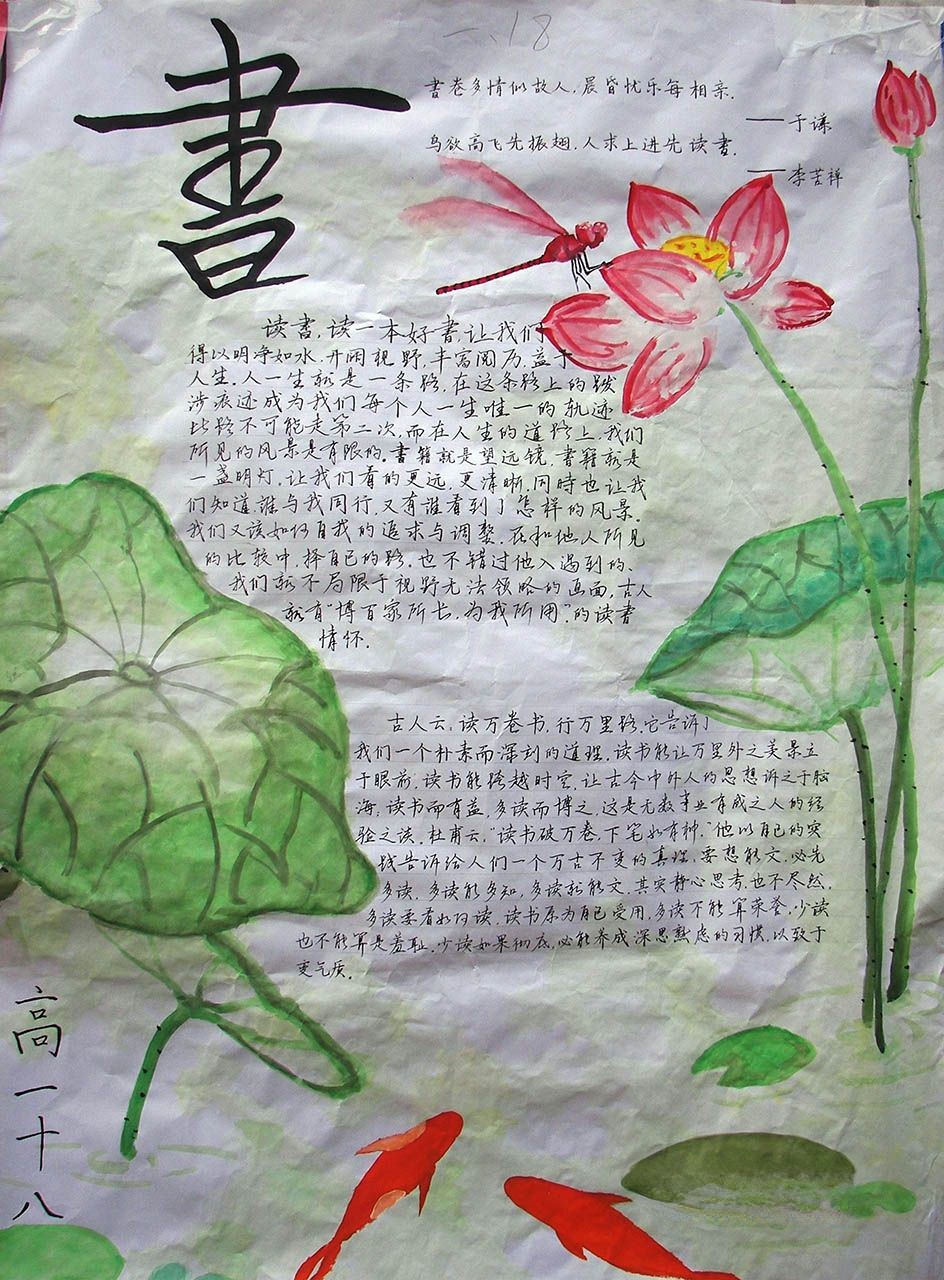 一.18
書
書卷多情似故人,晨昏忧乐每相亲.
——于谦
鸟欲高飞先振翅,人求上进先读書.
——李苦禅
读書,读一本好書,让我们
得以明净如水,开阔视野,丰富阅历,益于
人生.人一生就是一条路,在这条路上的跋
涉痕迹成为我们每个人一生唯一的轨迹
此路不可能走第二次,而在人生的道路上,我们
所见的风景是有限的.書籍就是望远镜,書籍就是
一盏明灯,让我们看的更远,更清晰,同時也让我
们知道谁与我同行,又有谁看到了怎样的风景.
我们又该如何自我的追求与调整.在和他人所见
的比较中,择自己的路.也不错过他人遇到的、
我们就不局限于视野无法领略的画面,古人
就有“博百家所长,为我所用.”的读書
情怀.
古人云:读万卷书,行万里路.它告诉了
我们一个朴素而深刻的道理,读书能让万里外之美景立
于眼前,读书能跨越时空,让古今中外人的思想诉之于脑
海,读书而有益,多读而博之,这是无数事业有成之人的经
验之谈,杜甫云:“读书破万卷,下笔如有神.”他以自己的实
践告诉给人们一个万古不变的真理,要想能文,必先
多读,多读能多知,多读就能文,其实静心思考,也不尽然,
多读要看如何读,读书原为自己受用,多读不能算荣誉,少读
也不能算是羞耻,少读如果彻底,必能养成深思熟虑的习惯,以致于
变气质.
高一十八